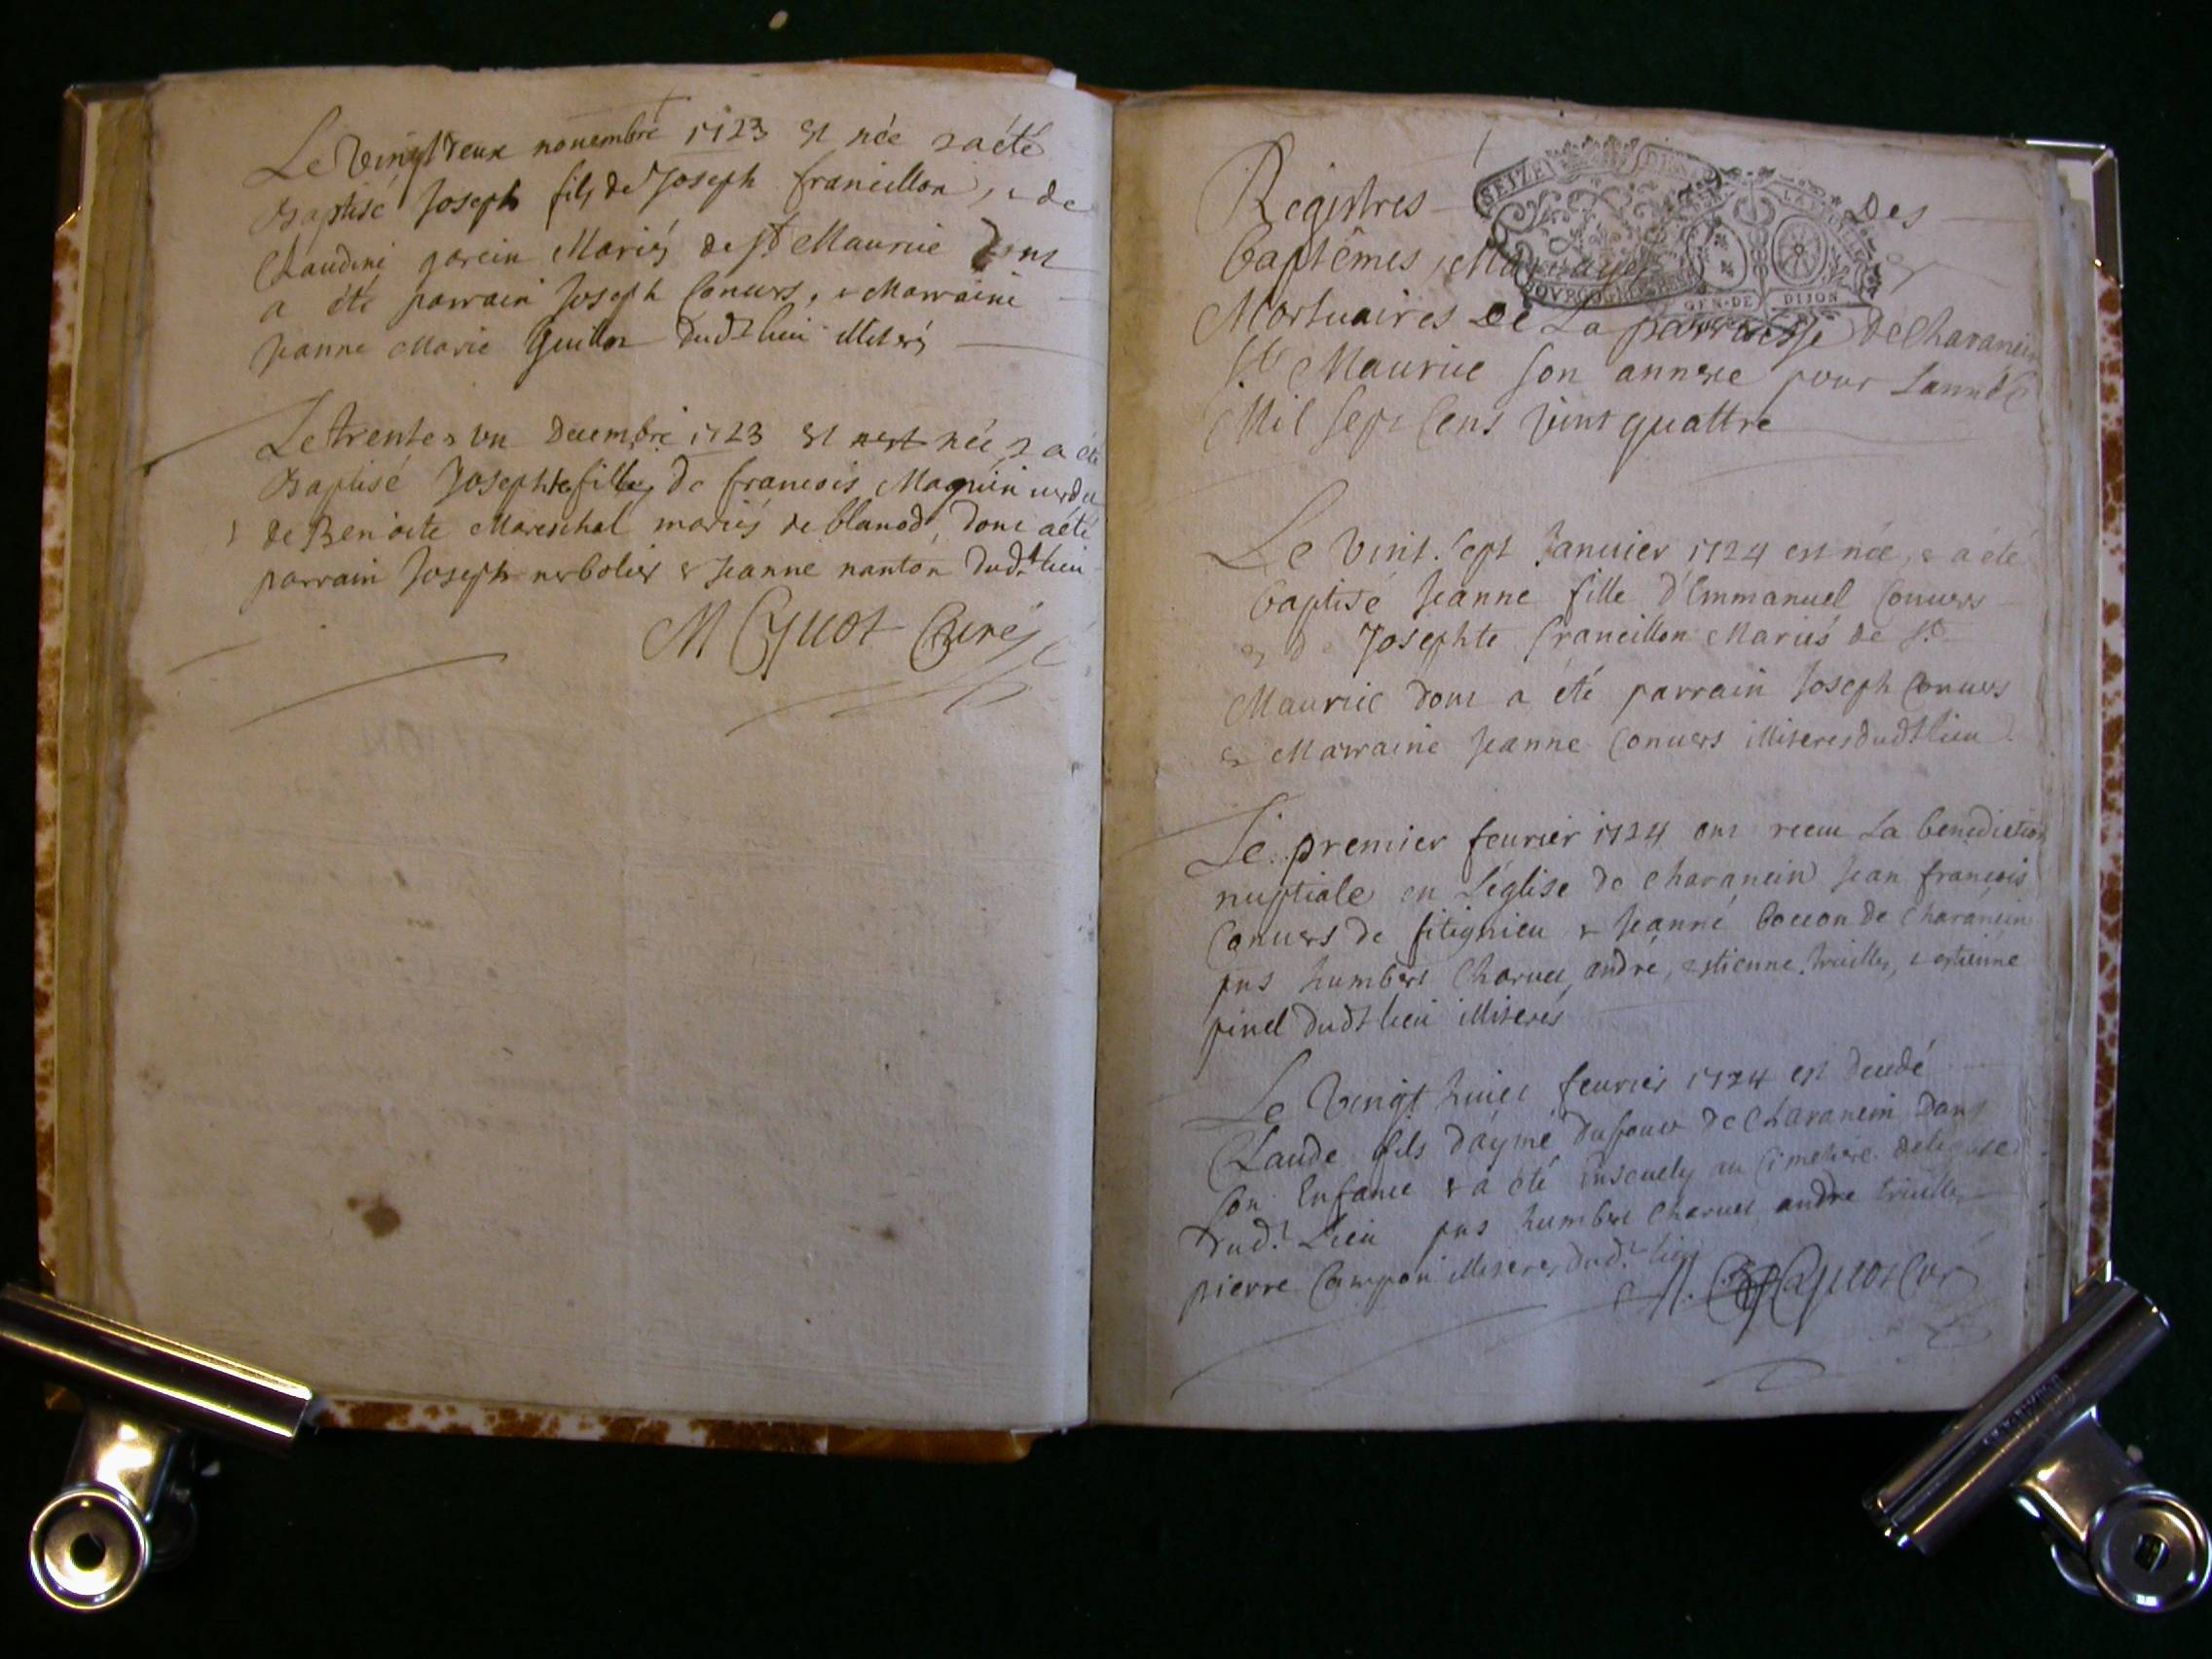 Le vingt deux novembre 1723 est née & a été
Baptisé Joseph fils de Joseph francillon, & de
Claudine garcin Mariés de St Maurice dont
a été parrain Joseph Convers, & Marraine
Jeanne Marie Guillot dudt lieu illiterés
Le trente & un Decembre 1723 est née & a été
Baptisé Josephte fille de francois Magnin
& de Benoite Mareschal mariés de blanod, dont a été
parrain Joseph & Jeanne nanton dudt lieu
M Cyuot Curé
Registres Des
SEIZE DEN
LA FEUILLE
BOURGOGNE
GEN·DE DIJON
Baptêmes, Mariages
Mortuaires de La parroisse de Charancin
St Maurice son annexe pour Lannée
Mil sept Cens vint quattre
Le vint. sept Janvier 1724 est née, & a été
baptisé Jeanne fille d'Emmanuel Convers
& de Josephte francillon Mariés de St
Maurice dont a été parrain Joseph Convers
& Marraine Jeanne Convers illiteres dudt lieu
Le premier fevrier 1724 ont receu La benediction
nuptiale en L'église de charancin Jean françois
Convers de fitignieu & Jeanne boccon de charancin
pns humbert Charvet, andré, & stienne truillet, & estienne
pinel dudt lieu illiterés
Le vingt huict fevrier 1724 est decedé
Claude fils d'aymé dufour de Charancin dans
son Enfance & a été ensevely au Cimetiere deleglise
dudt Lieu pns humbert Charvet, andre truillet
pierre illiteres dudt lieu
M. Cyuot Curé